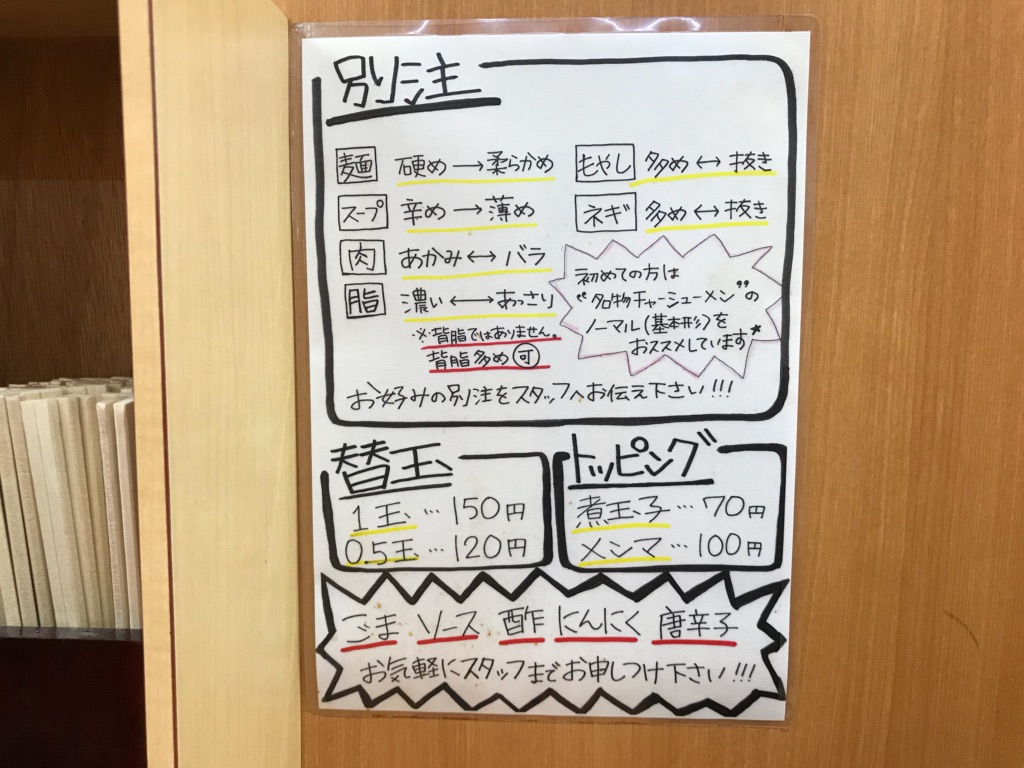 別注
麺 硬め→柔らかめ
スープ 辛め→薄め
肉 あかみ↔バラ
脂 濃い↔あっさり
※背脂ではありません。
背脂多め可
もやし 多め↔抜き
ネギ 多め↔抜き
初めての方は
"名物チャーシューメン"の
ノーマル(基本形)を
おススメしています*
お好みの別注をスタッフへお伝え下さい!!!
替玉
1玉…150円
0.5玉…120円
トッピング
煮玉子…70円
メンマ…100円
ごま ソース 酢 にんにく 唐辛子
お気軽にスタッフまでお申しつけ下さい!!!